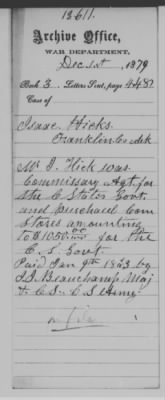 13611.
Archive Office,
WAR DEPARTMENT,
Dec 1st, 1879
Book 3, Letters Sent, page 448
Case of
Isaac Hicks
Franklin Co
Mr I. Hick was
Commissary Agt. for
the C States Govt.
and Purchased Com
Stores amounting
to $1050 for the
C. S. Govt.
Paid Jan 9th 1863 by
Beauchamp, Maj
& C.S. C S Army